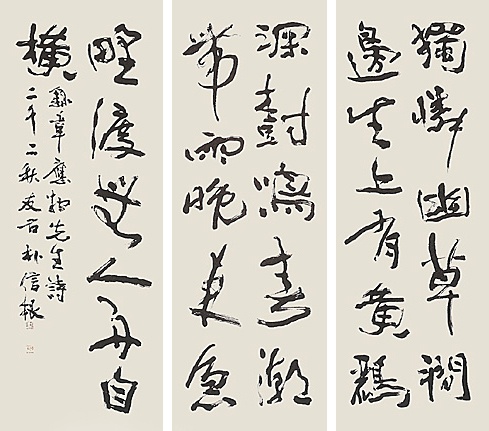 獨憐幽草澗
邊生上有黃鸝
深樹鳴春潮
帶雨晚來急
野渡無人舟自
橫
錄韋應物先生詩
二千二秋友石朴信根